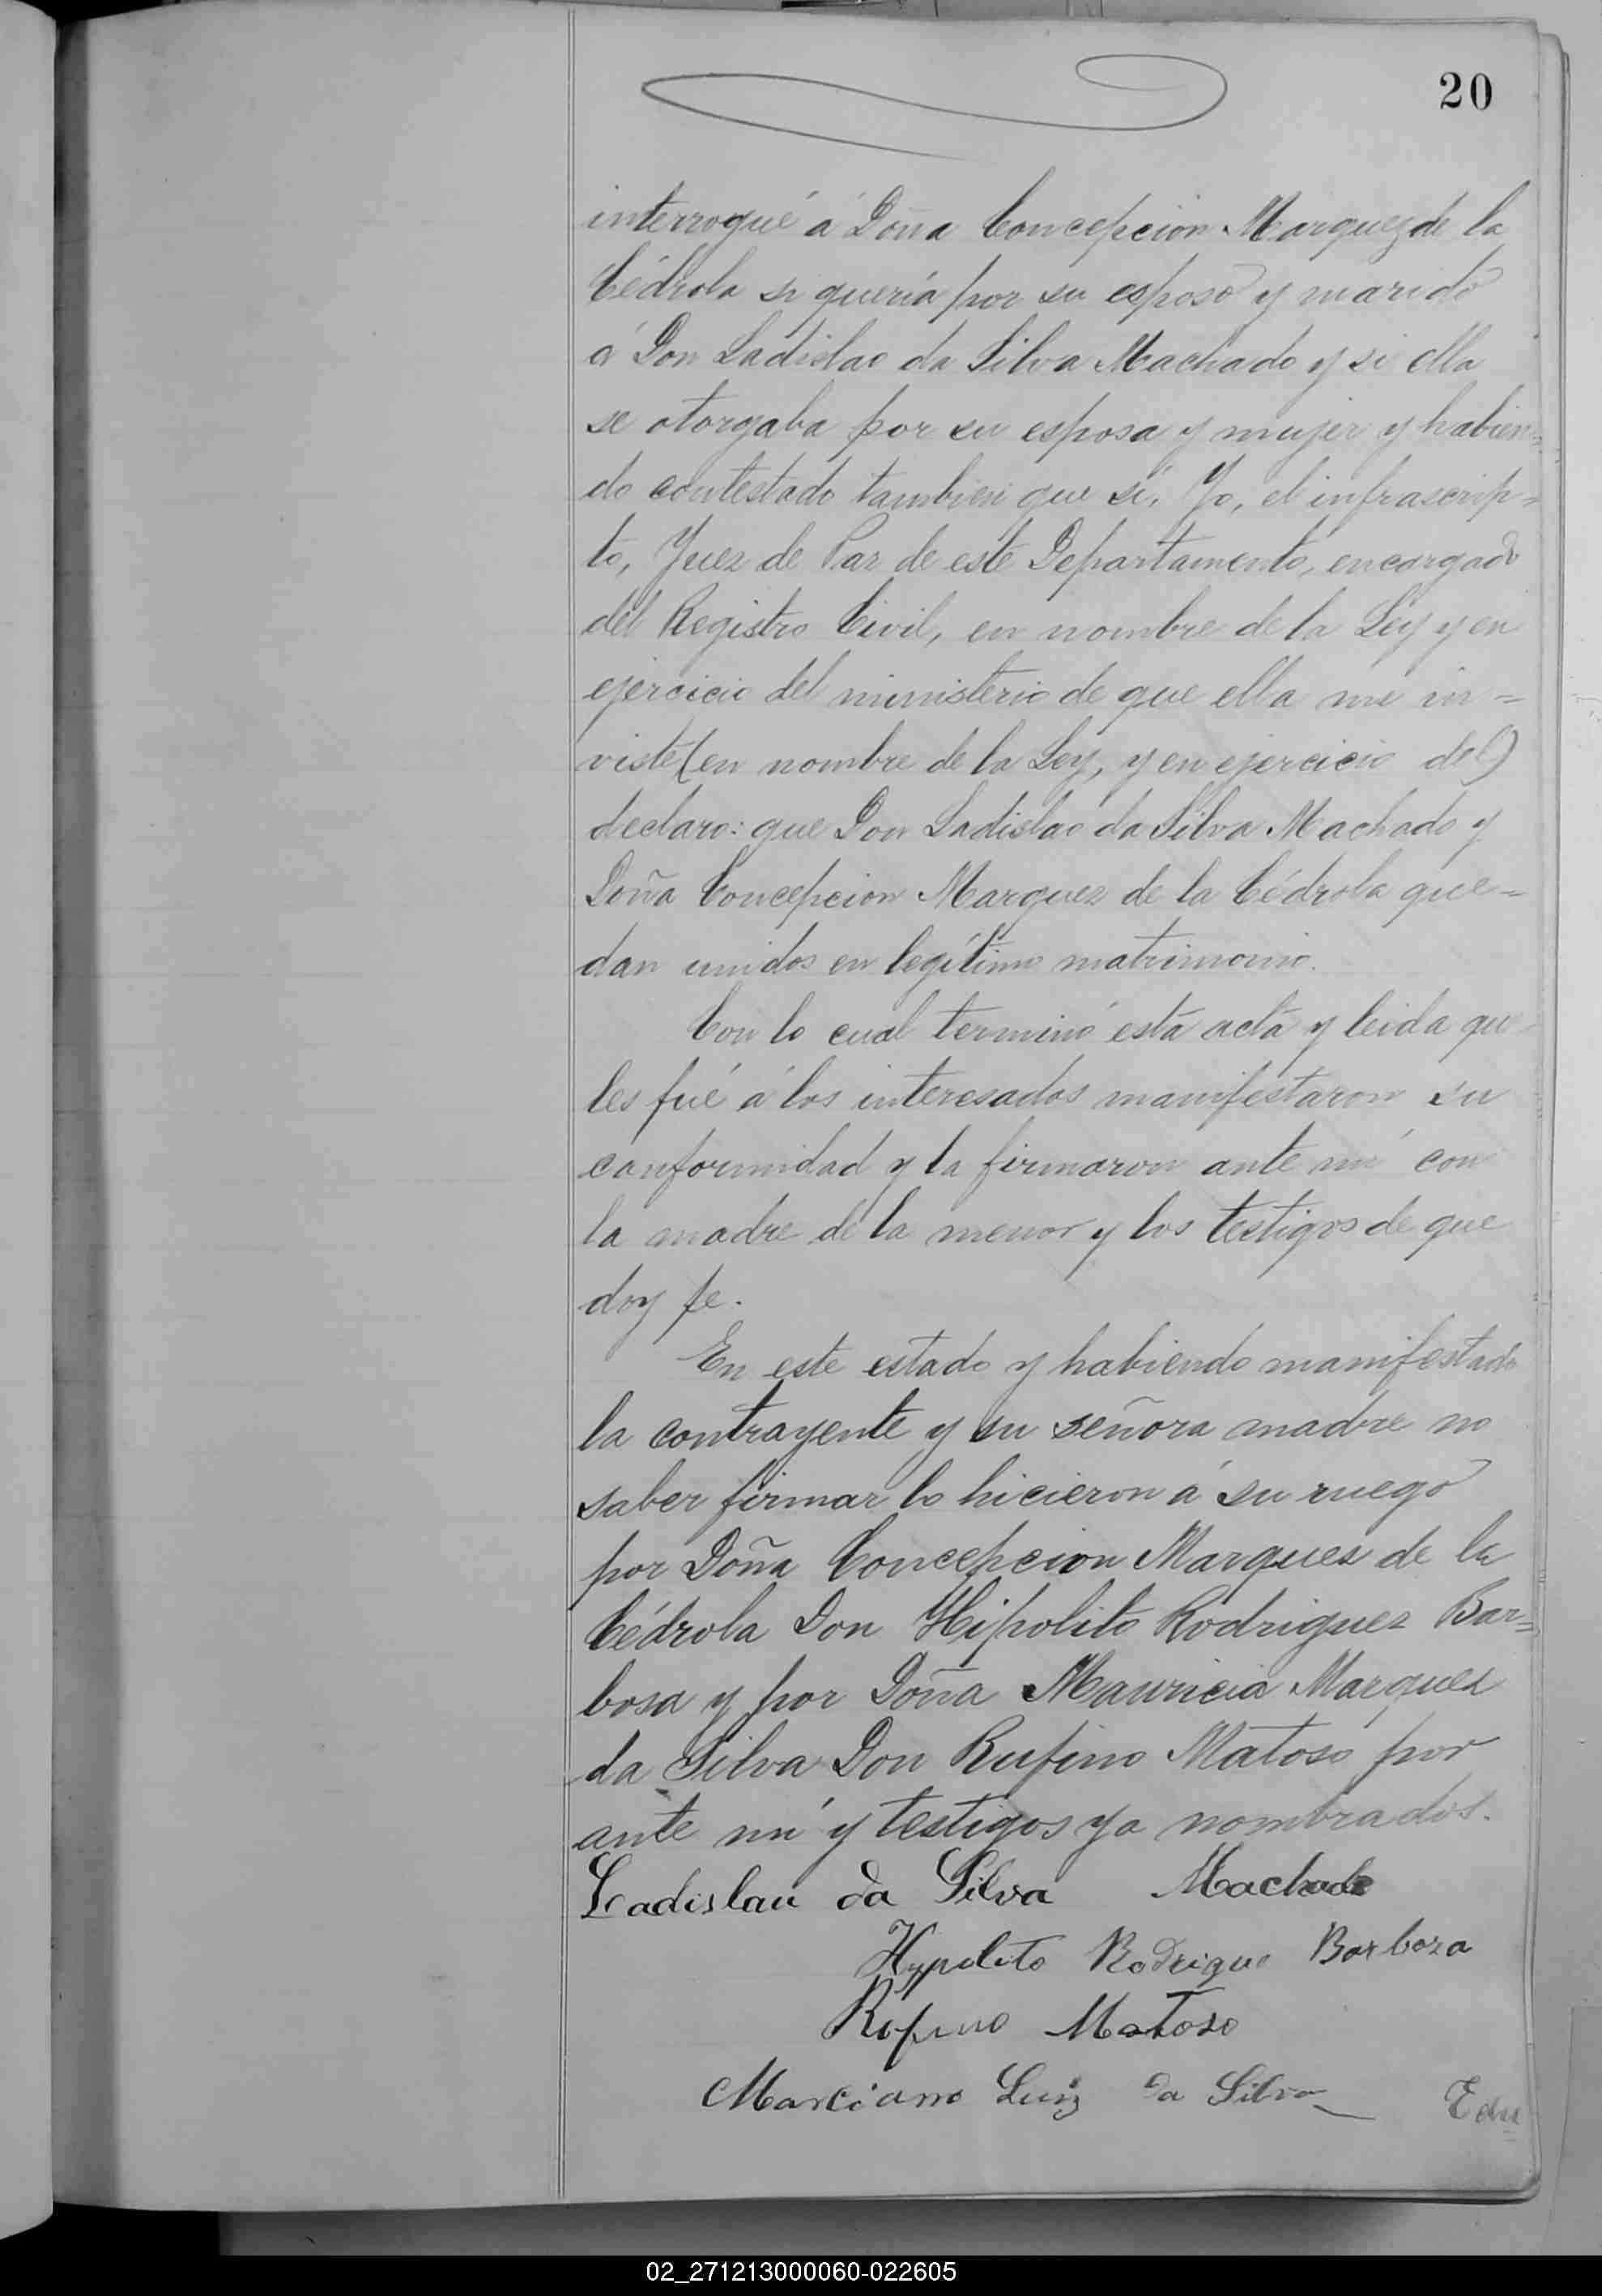 20
interrogué á Doña Concepcion Marquez de la
Cédrola si quería por su esposo y marido
á Don Ladislao da Silva Machado y si ella
se otorgaba por su esposa y mujer y habien=
do contestado tambien que sí. Yo, el infrascrip=
to, Juez de Paz de este Departamento, encargado
del Registro Civil, en nombre de la Ley y en
ejercicio del ministerio de que ella me in=
viste (en nombre de la Ley, y en ejercicio del)
declaro: que Don Ladislao da Silva Machado y
Doña Concepcion Marquez de la Cédrola que=
dan unidos en legítimo matrimonio.
Con lo cual terminó esta acta y leida que
les fué á los interesados manifestaron su
conformidad y la firmaron ante mí con
la madre de la menor y los testigos de que
doy fe.
En este estado y habiendo manifestado
la contrayente y su señora madre no
saber firmar lo hicieron á su ruego
por Doña Concepcion Marques de la
Cédrola Don Hipolito Rodriguez Bar=
bosa y por Doña Mauricia Marquez
da Silva Don Rufino Matoso por
ante mí y testigos ya nombrados.
Ladislau da Silva Machado
Hypolito Rodrigue Barboza
Rofino Matoso
Marciano Luiz da Silva
02_271213000060-022605